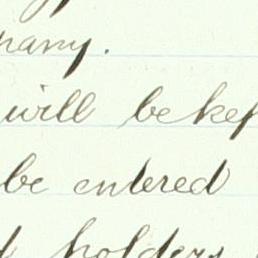 pany.
will be kep
be entered
holders